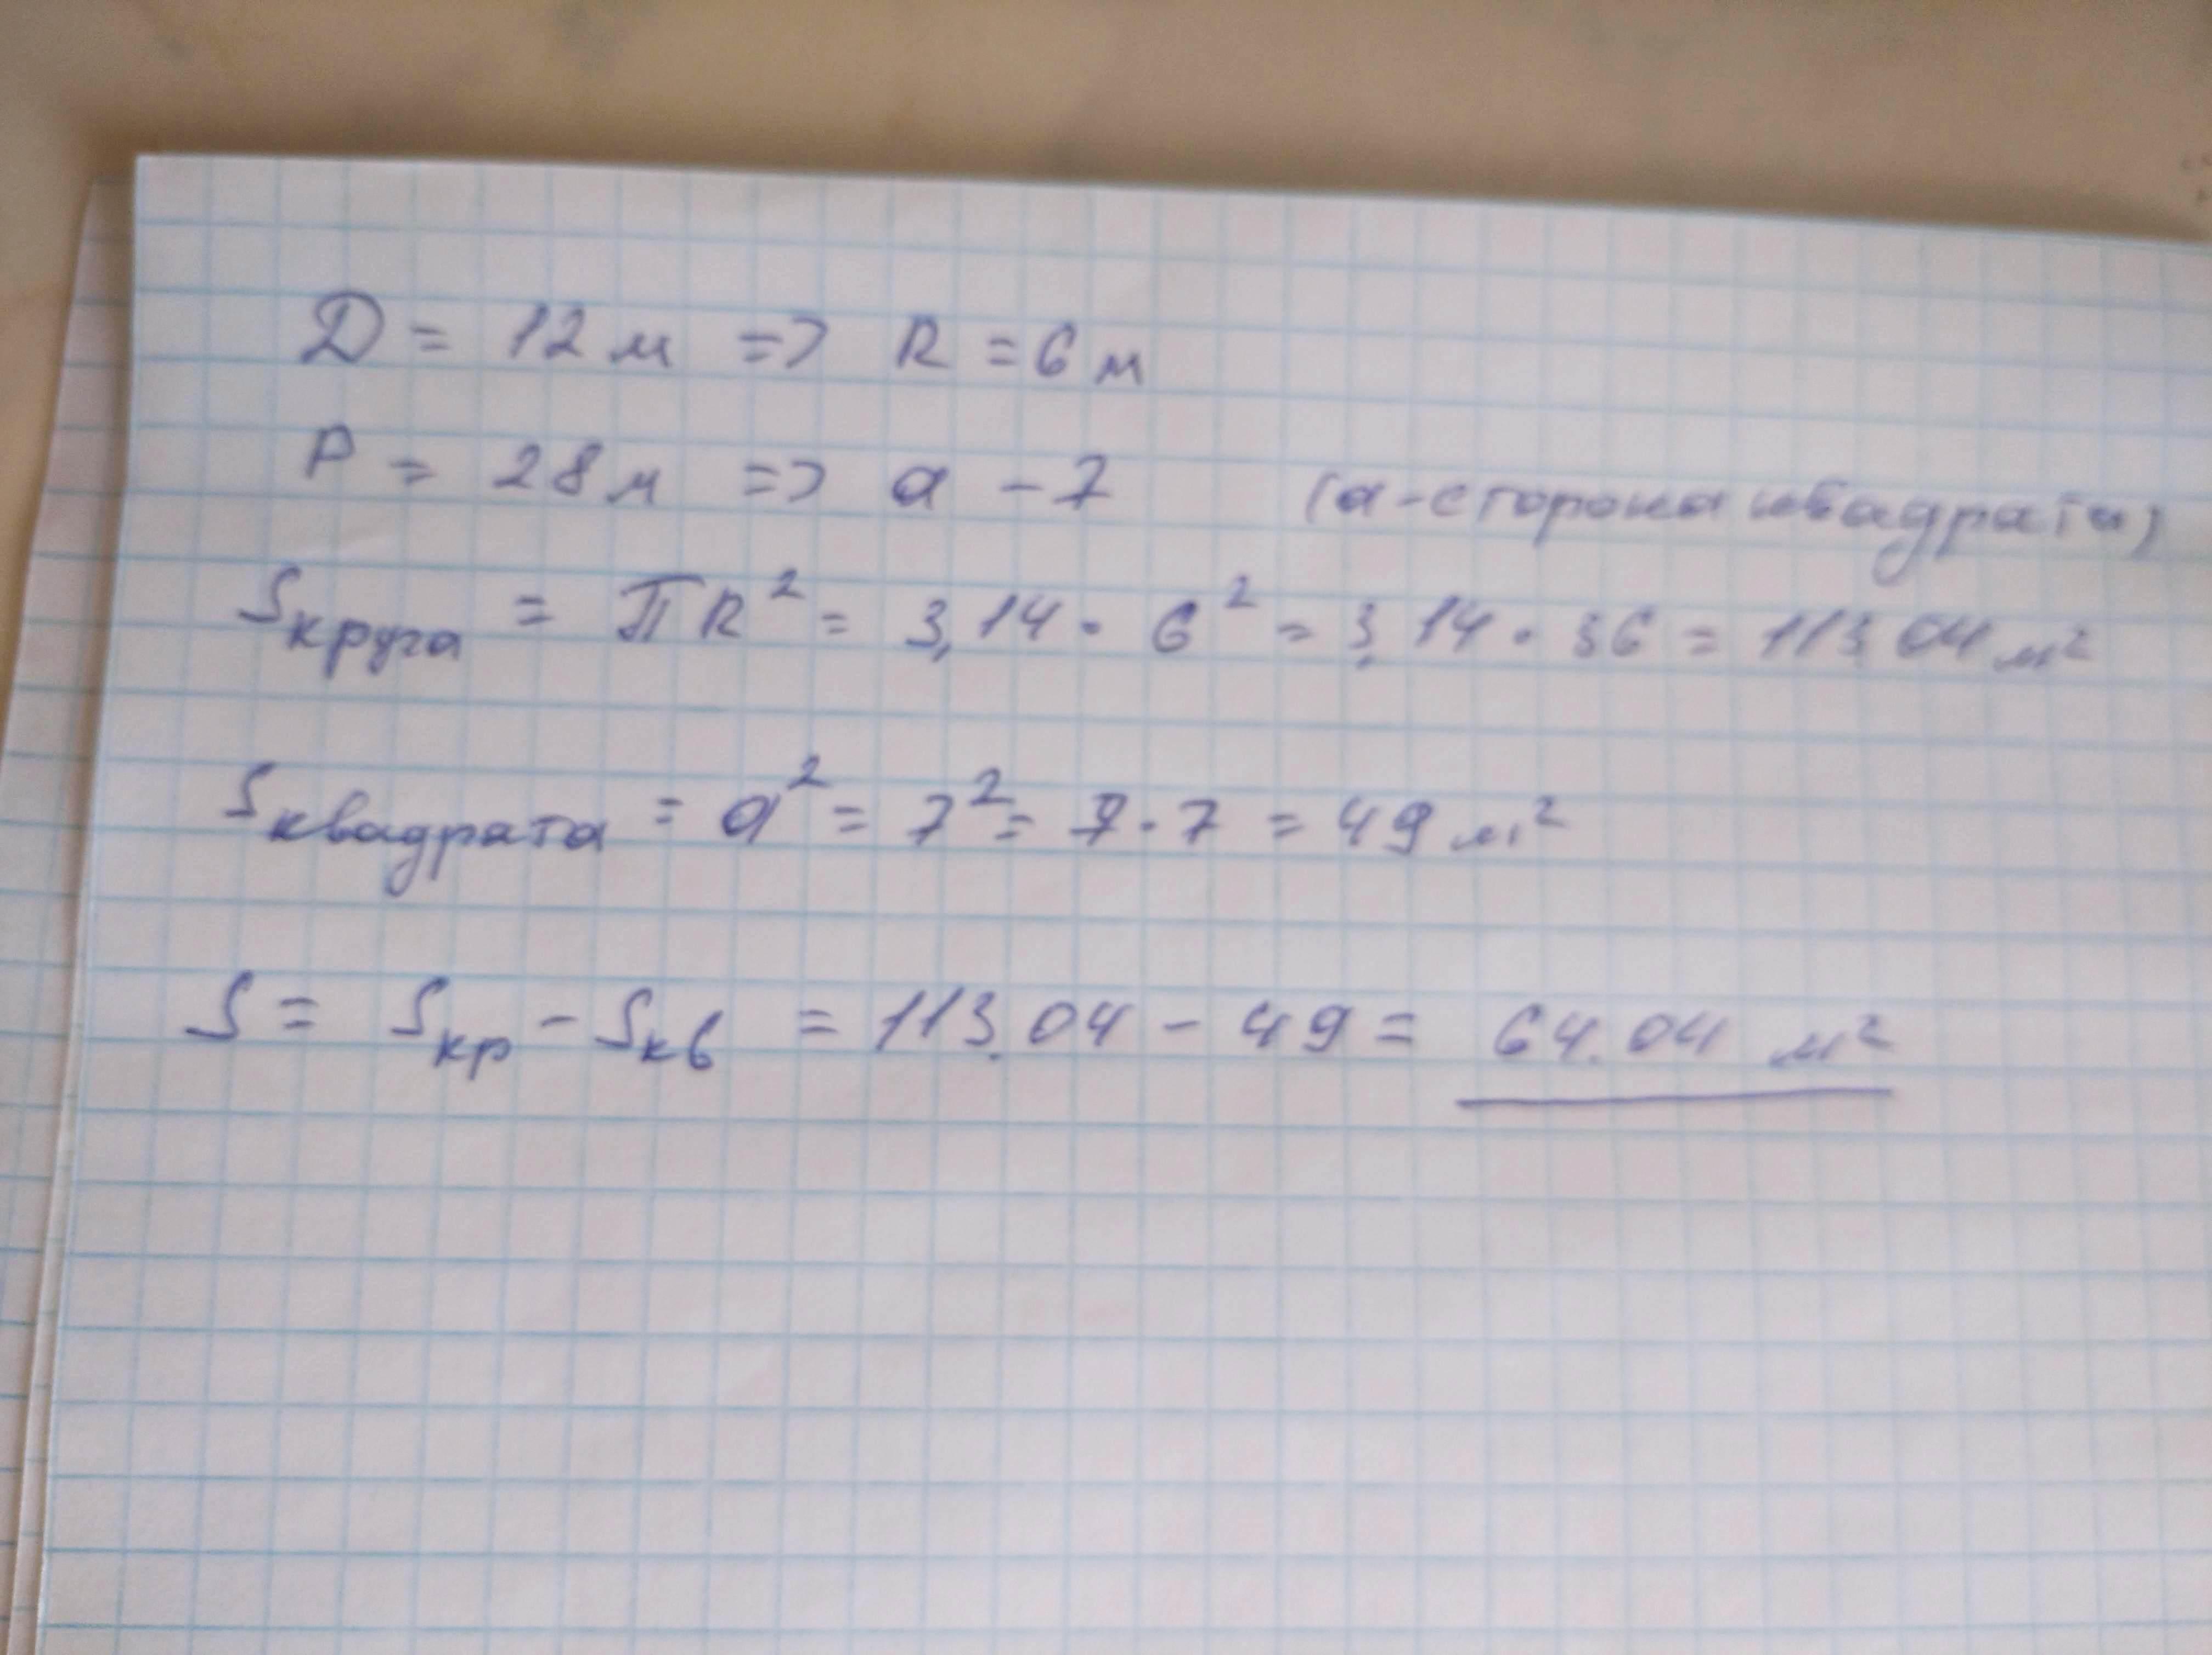 Д = 12 м => R = 6 м
P = 28 м => a - 7 (а-сторона квадрата)
Sкруга = πR² = 3,14 · 6² = 3,14 · 36 = 113,04 м²
Sквадрата = a² = 7² = 7·7 = 49 м²
S = Sкр - Sкв = 113.04 - 49 = 64.04 м²